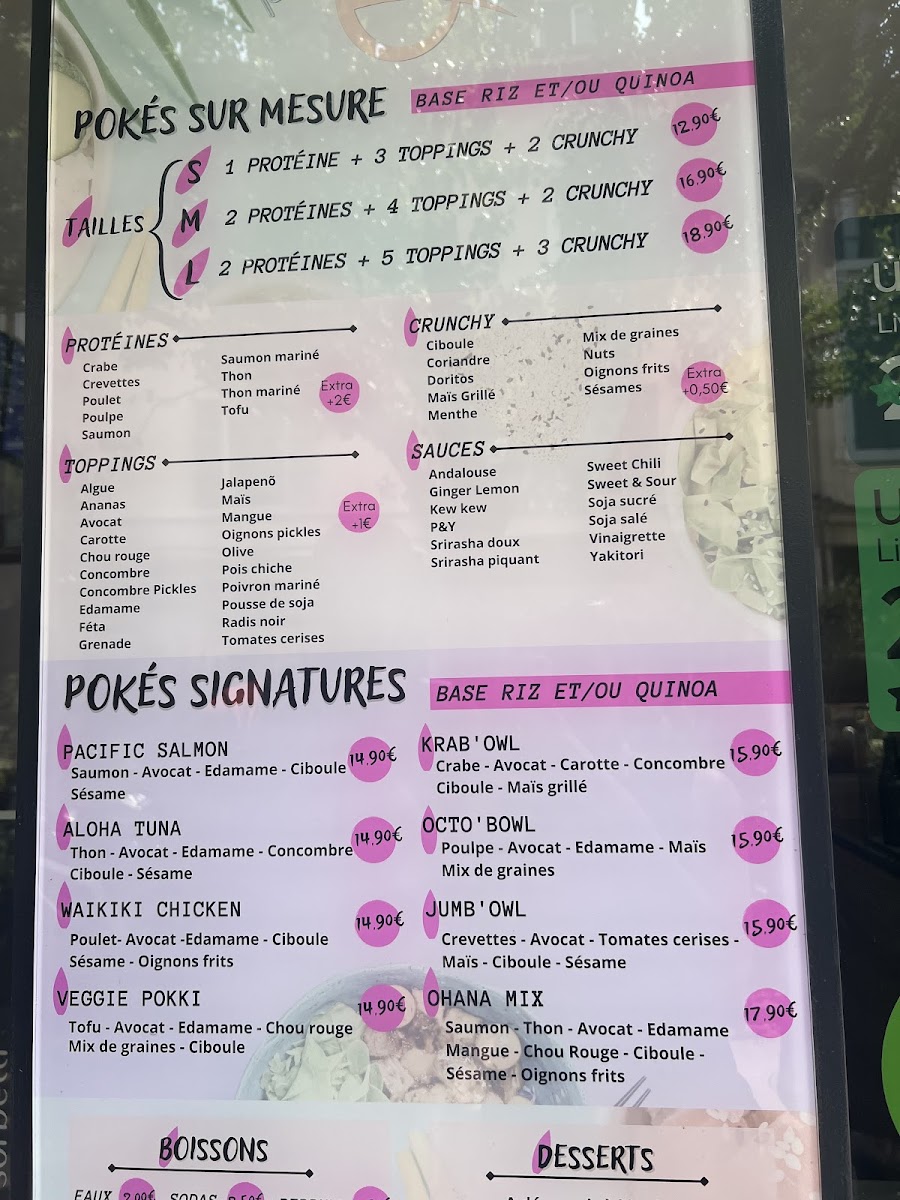 POKÉS SUR MESURE
BASE RIZ ET/OU QUINOA
TAILLES
S 1 PROTÉINE + 3 TOPPINGS + 2 CRUNCHY 12.90€
M 2 PROTÉINES + 4 TOPPINGS + 2 CRUNCHY 16.90€
L 2 PROTÉINES + 5 TOPPINGS + 3 CRUNCHY 18.90€
PROTÉINES
Crabe
Crevettes
Poulet
Poulpe
Saumon
Saumon mariné
Thon
Thon mariné
Tofu
Extra
+2€
CRUNCHY
Ciboule
Coriandre
Doritos
Maïs Grillé
Menthe
Mix de graines
Nuts
Oignons frits
Sésames
Extra
+0,50€
TOPPINGS
Algue
Ananas
Avocat
Carotte
Chou rouge
Concombre
Concombre Pickles
Edamame
Féta
Grenade
Jalapenõ
Maïs
Mangue
Oignons pickles
Olive
Pois chiche
Poivron mariné
Pousse de soja
Radis noir
Tomates cerises
Extra
+1€
SAUCES
Andalouse
Ginger Lemon
Kew kew
P&Y
Srirasha doux
Srirasha piquant
Sweet Chili
Sweet & Sour
Soja sucré
Soja salé
Vinaigrette
Yakitori
POKÉS SIGNATURES
BASE RIZ ET/OU QUINOA
PACIFIC SALMON 14.90€
Saumon - Avocat - Edamame - Ciboule
Sésame
ALOHA TUNA 14.90€
Thon - Avocat - Edamame - Concombre
Ciboule - Sésame
WAIKIKI CHICKEN 14.90€
Poulet- Avocat -Edamame - Ciboule
Sésame - Oignons frits
VEGGIE POKKI 14.90€
Tofu - Avocat - Edamame - Chou rouge
Mix de graines - Ciboule
KRAB'OWL 15.90€
Crabe - Avocat - Carotte - Concombre
Ciboule - Maïs grillé
OCTO'BOWL 15.90€
Poulpe - Avocat - Edamame - Maïs
Mix de graines
JUMB'OWL 15.90€
Crevettes - Avocat - Tomates cerises -
Maïs - Ciboule - Sésame
OHANA MIX 17.90€
Saumon - Thon - Avocat - Edamame
Mangue - Chou Rouge - Ciboule -
Sésame - Oignons frits
BOISSONS
EAUX 2.00€ SODAS
DESSERTS